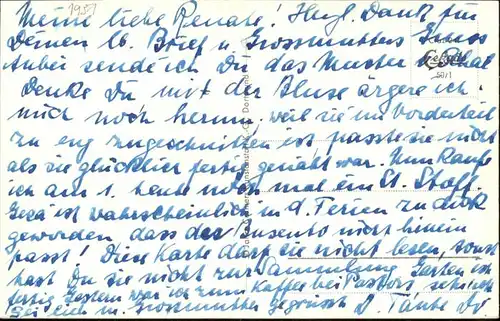 1951
Meine liebe Renate! Herzl. Dank für
Deinen lb. Brief u. Grossmutters Gruss
Anbei sende ich Du das Muster
Denke Du mit der Bluse ärgere ich
mich noch herum, weil sie im Vorderteil
zu eng zugeschnitten ist passte sie nicht
als sie glücklich fertig genäht war. Nun kaufe
ich am 1. heute noch mal ein St. Stoff.
ist wahrscheinlich in d. Ferien zu dick
geworden dass der nicht hinein
passt! Diese Karte darf sie nicht lesen, sonst
hast Du sie nicht zur Sammlung Garten ist
fertig Gestern war ich zum Kaffee bei Pastors, sehr nett
Sei lieb m. Grossmutter gegrüsst D. Tante